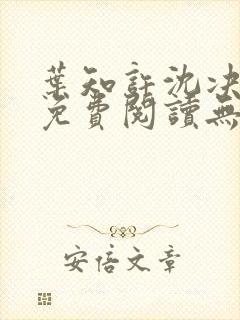 葉知許沈決
免費閱讀無
安信文章